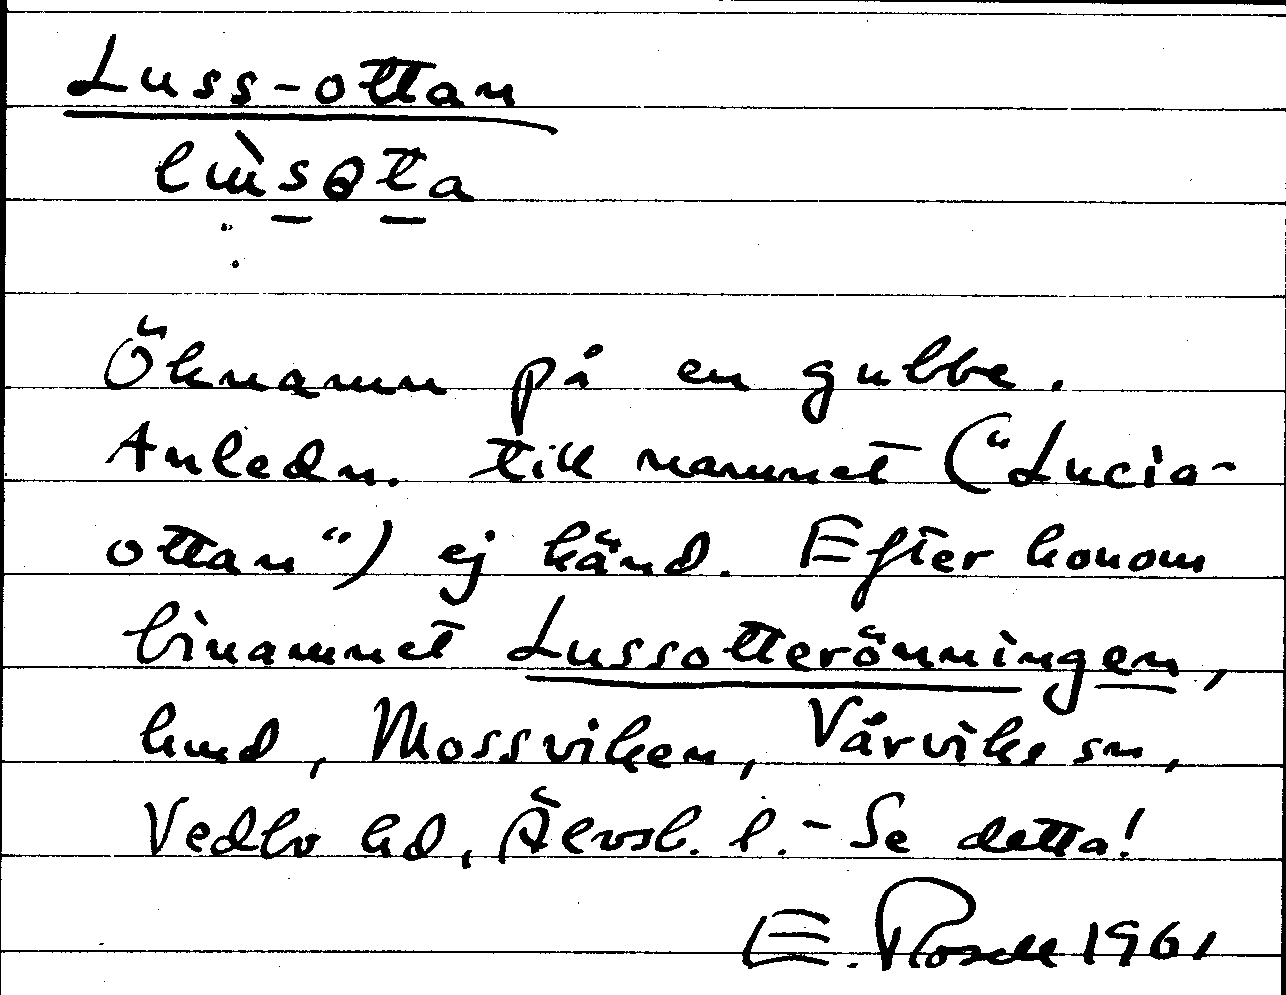 Luss-ottan
lùsota
Öknamn på en gubbe.
Anledn. till namnet ("Lucia-
ottan") ej känd. Efter honom
binamnet Lussotterönningen,
hmd, Mossviken, Vårviks sn,
Vedbo hd, Älvsb. l. - Se detta!
E. Rosell 1961